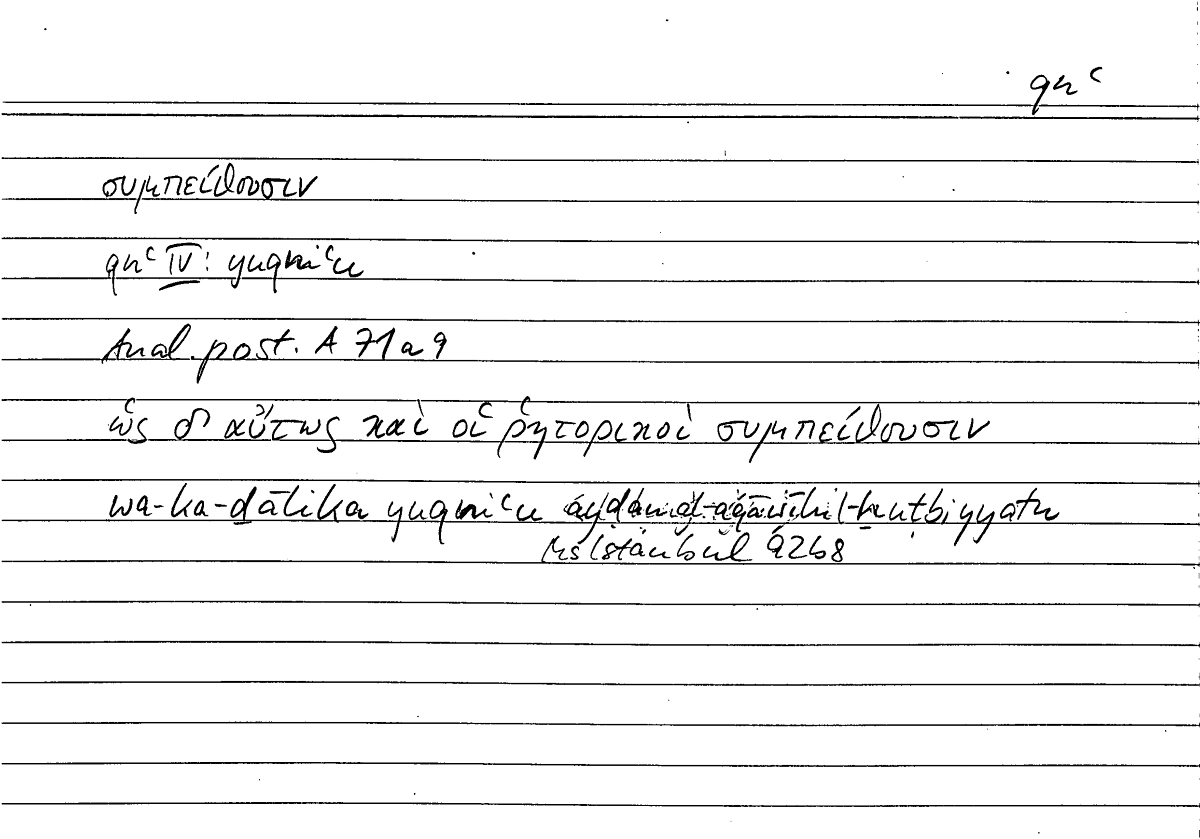 qnʿ
συμπείθουσιν
qnʿ IV: yuqniʿu
Anal. post. A 71a9
ὡς δ' αὔτως καὶ οἱ ῥητορικοὶ συμπείθουσιν
wa-ka-ḏālika yuqniʿu ayḍan al-aqāwīlu l-ḫuṭbiyyatu
Ms Istānbūl 92b8